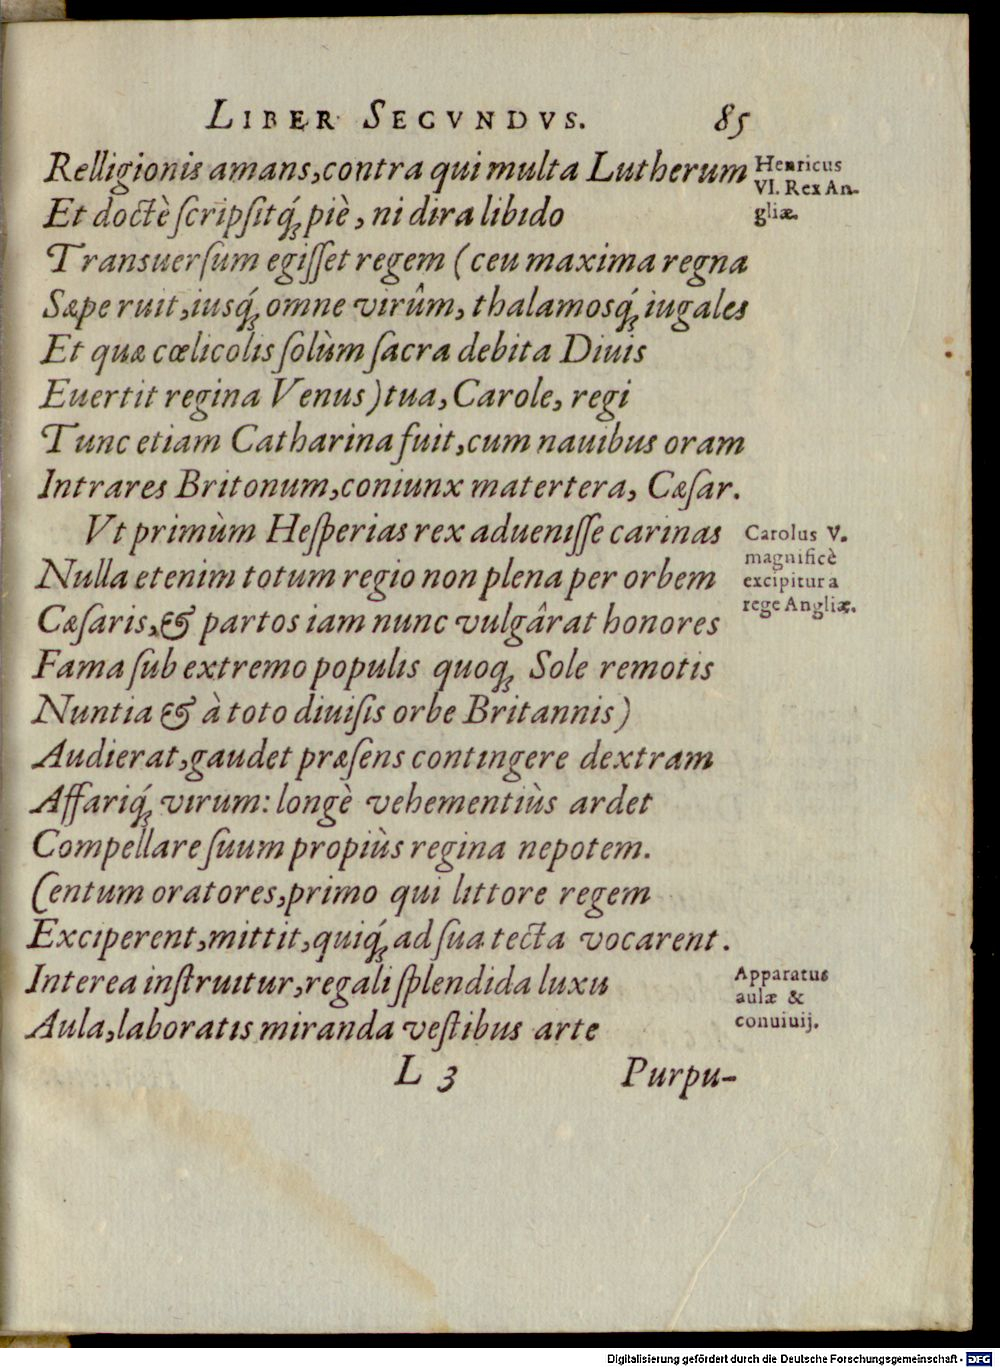 LIBER SECVNDVS. 85
Relligionis amans, contra qui multa Lutherum
Henricus
VI. Rex An-
gliæ.
Et doctè ſcripſitq́; piè, ni dira libido
Transuerſum egiſſet regem (ceu maxima regna
Sæpe ruit, iusq́; omne virûm, thalamosq́; iugales
Et quæ cœlicolis ſolùm ſacra debita Diuis
Euertit regina Venus) tua, Carole, regi
Tunc etiam Catharina fuit, cum nauibus oram
Intrares Britonum, coniunx matertera, Cæſar.
Vt primùm Heſperias rex adueniſſe carinas
Carolus V.
magnificè
excipitur a
rege Angliæ.
Nulla etenim totum regio non plena per orbem
Cæſaris, & partos iam nunc vulgârat honores
Fama ſub extremo populis quoq; Sole remotis
Nuntia & à toto diuiſis orbe Britannis)
Audierat, gaudet præſens contingere dextram
Affariq́; virum: longè vehementiùs ardet
Compellare ſuum propiùs regina nepotem.
Centum oratores, primo qui littore regem
Exciperent, mittit, quiq́; ad ſua tecta vocarent.
Interea inſtruitur, regali ſplendida luxu
Apparatus
aulæ &
conuiuij.
Aula, laboratis miranda veſtibus arte
L 3 Purpu-
Digitalisierung gefördert durch die Deutsche Forschungsgemeinschaft - DFG